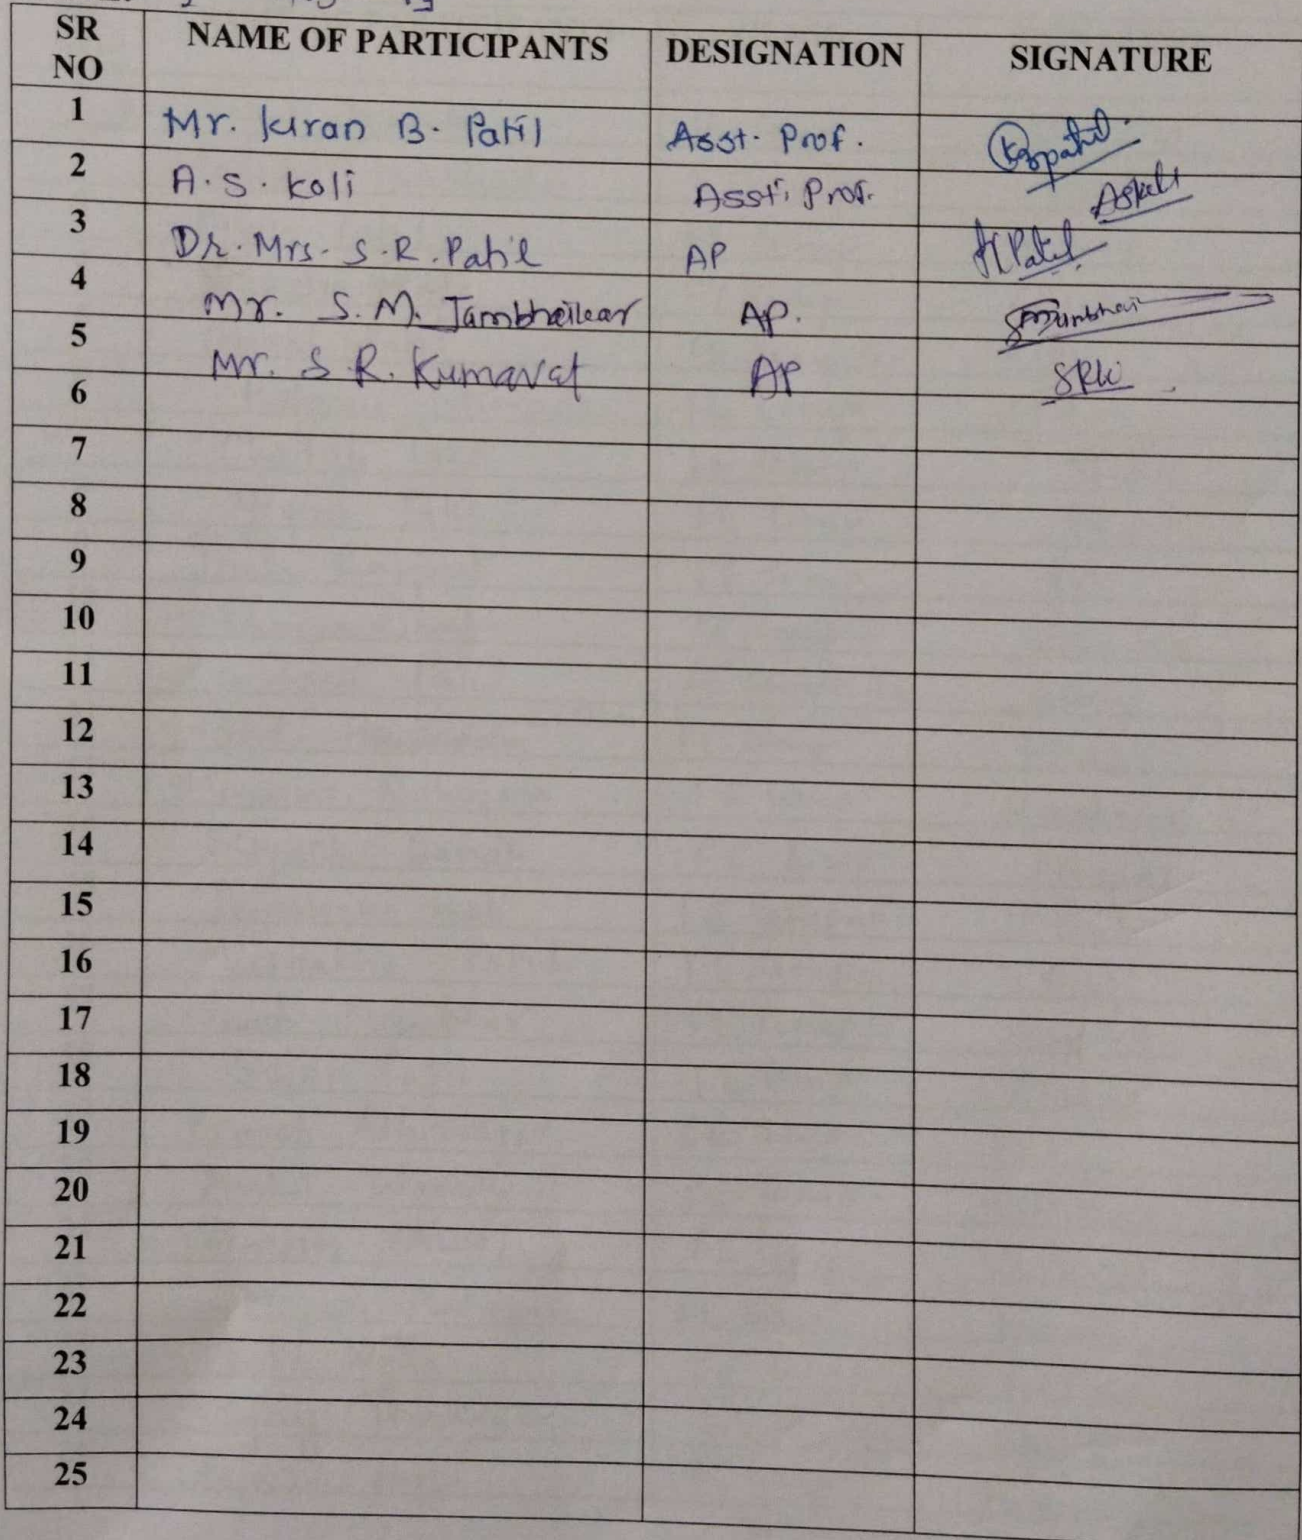 SR NO NAME OF PARTICIPANTS DESIGNATION SIGNATURE
1 Mr. Kiran B. Patil Asst. Prof. KBPatil
2 A.S. Koli Asst. Prof. ASKoli
3 Dr. Mrs. S.R. Patil AP Patil
4 Mr. S.M. Jambhailkar AP.
5 Mr. S R. Kumavat AP
6
7
8
9
10
11
12
13
14
15
16
17
18
19
20
21
22
23
24
25